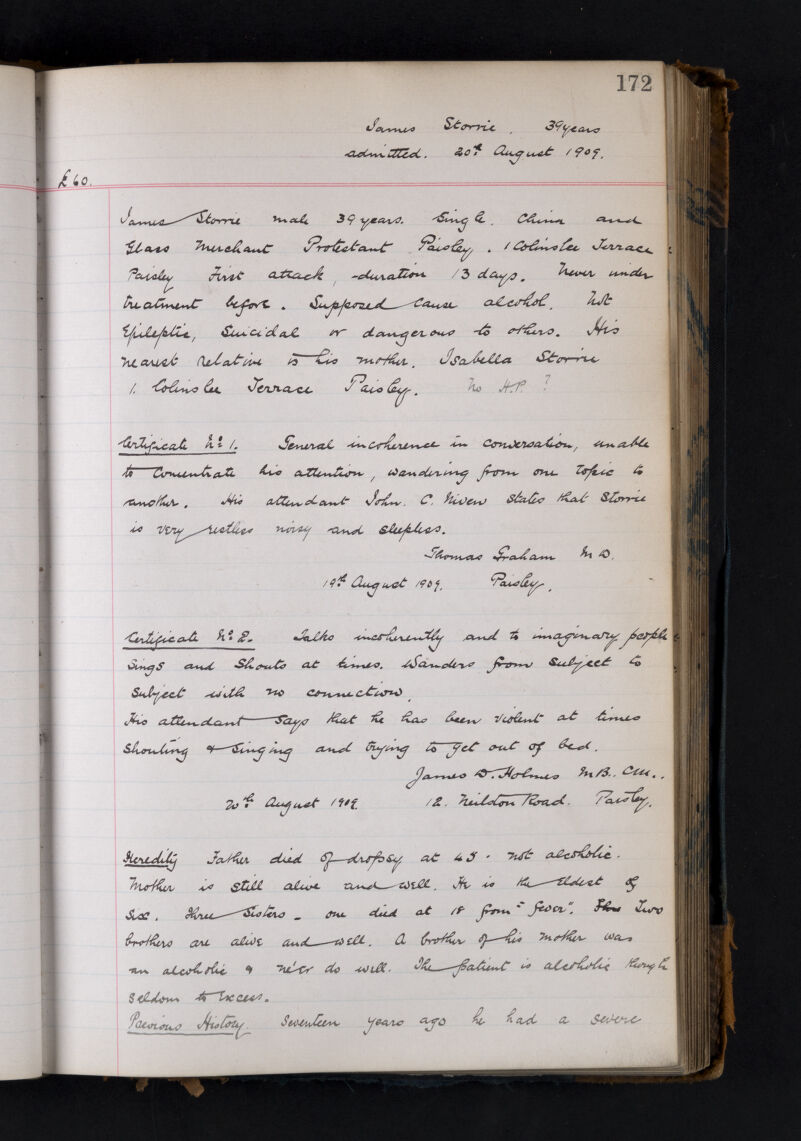 172
James Storrie. 39 years
admitted. 20th August 1909.
£60.
James Storrie male 39 years. Single. China and
Glass Merchant Protestant Paisley. 1 Colinslee Terrace
Paisley First attack, duration 13 days. Never under
treatment before. Supposed cause alcohol. Not
Epileptic, Suicidal or dangerous to others. His
nearest relative is his mother. Isabella Storrie
1. Colinslee Terrace Paisley. No H.P. ?
Certificate No 1. General incoherence in conversation, unable
to concentrate his attention, wandering from one topic to
another. His attendant John. C. Niven states that Storrie
is very restless noisy and sleepless.
Thomas Graham M.D.
19th August 1909. Paisley.
Certificate No 2. Talks incoherently and to imaginary people
Sings and Shouts at times. Wanders from subject to
subject with no connection.
His attendant says that he has been violent at times
shouting & singing and trying to get out of bed.
James D. Holmes M.B.. C.M..
20th August 1909. 12. Neilston Road. Paisley.
Heredity Father died of dropsy at 45. not alcoholic.
Mother is still alive and well. He is the eldest of
six. Three Sisters - one died at 18 from "fever". Two
brothers are alive and well. A brother of his mother was
an alcoholic & ne'er do well. The patient is alcoholic though
seldom to excess.
Previous History. Seventeen years ago he had a severe